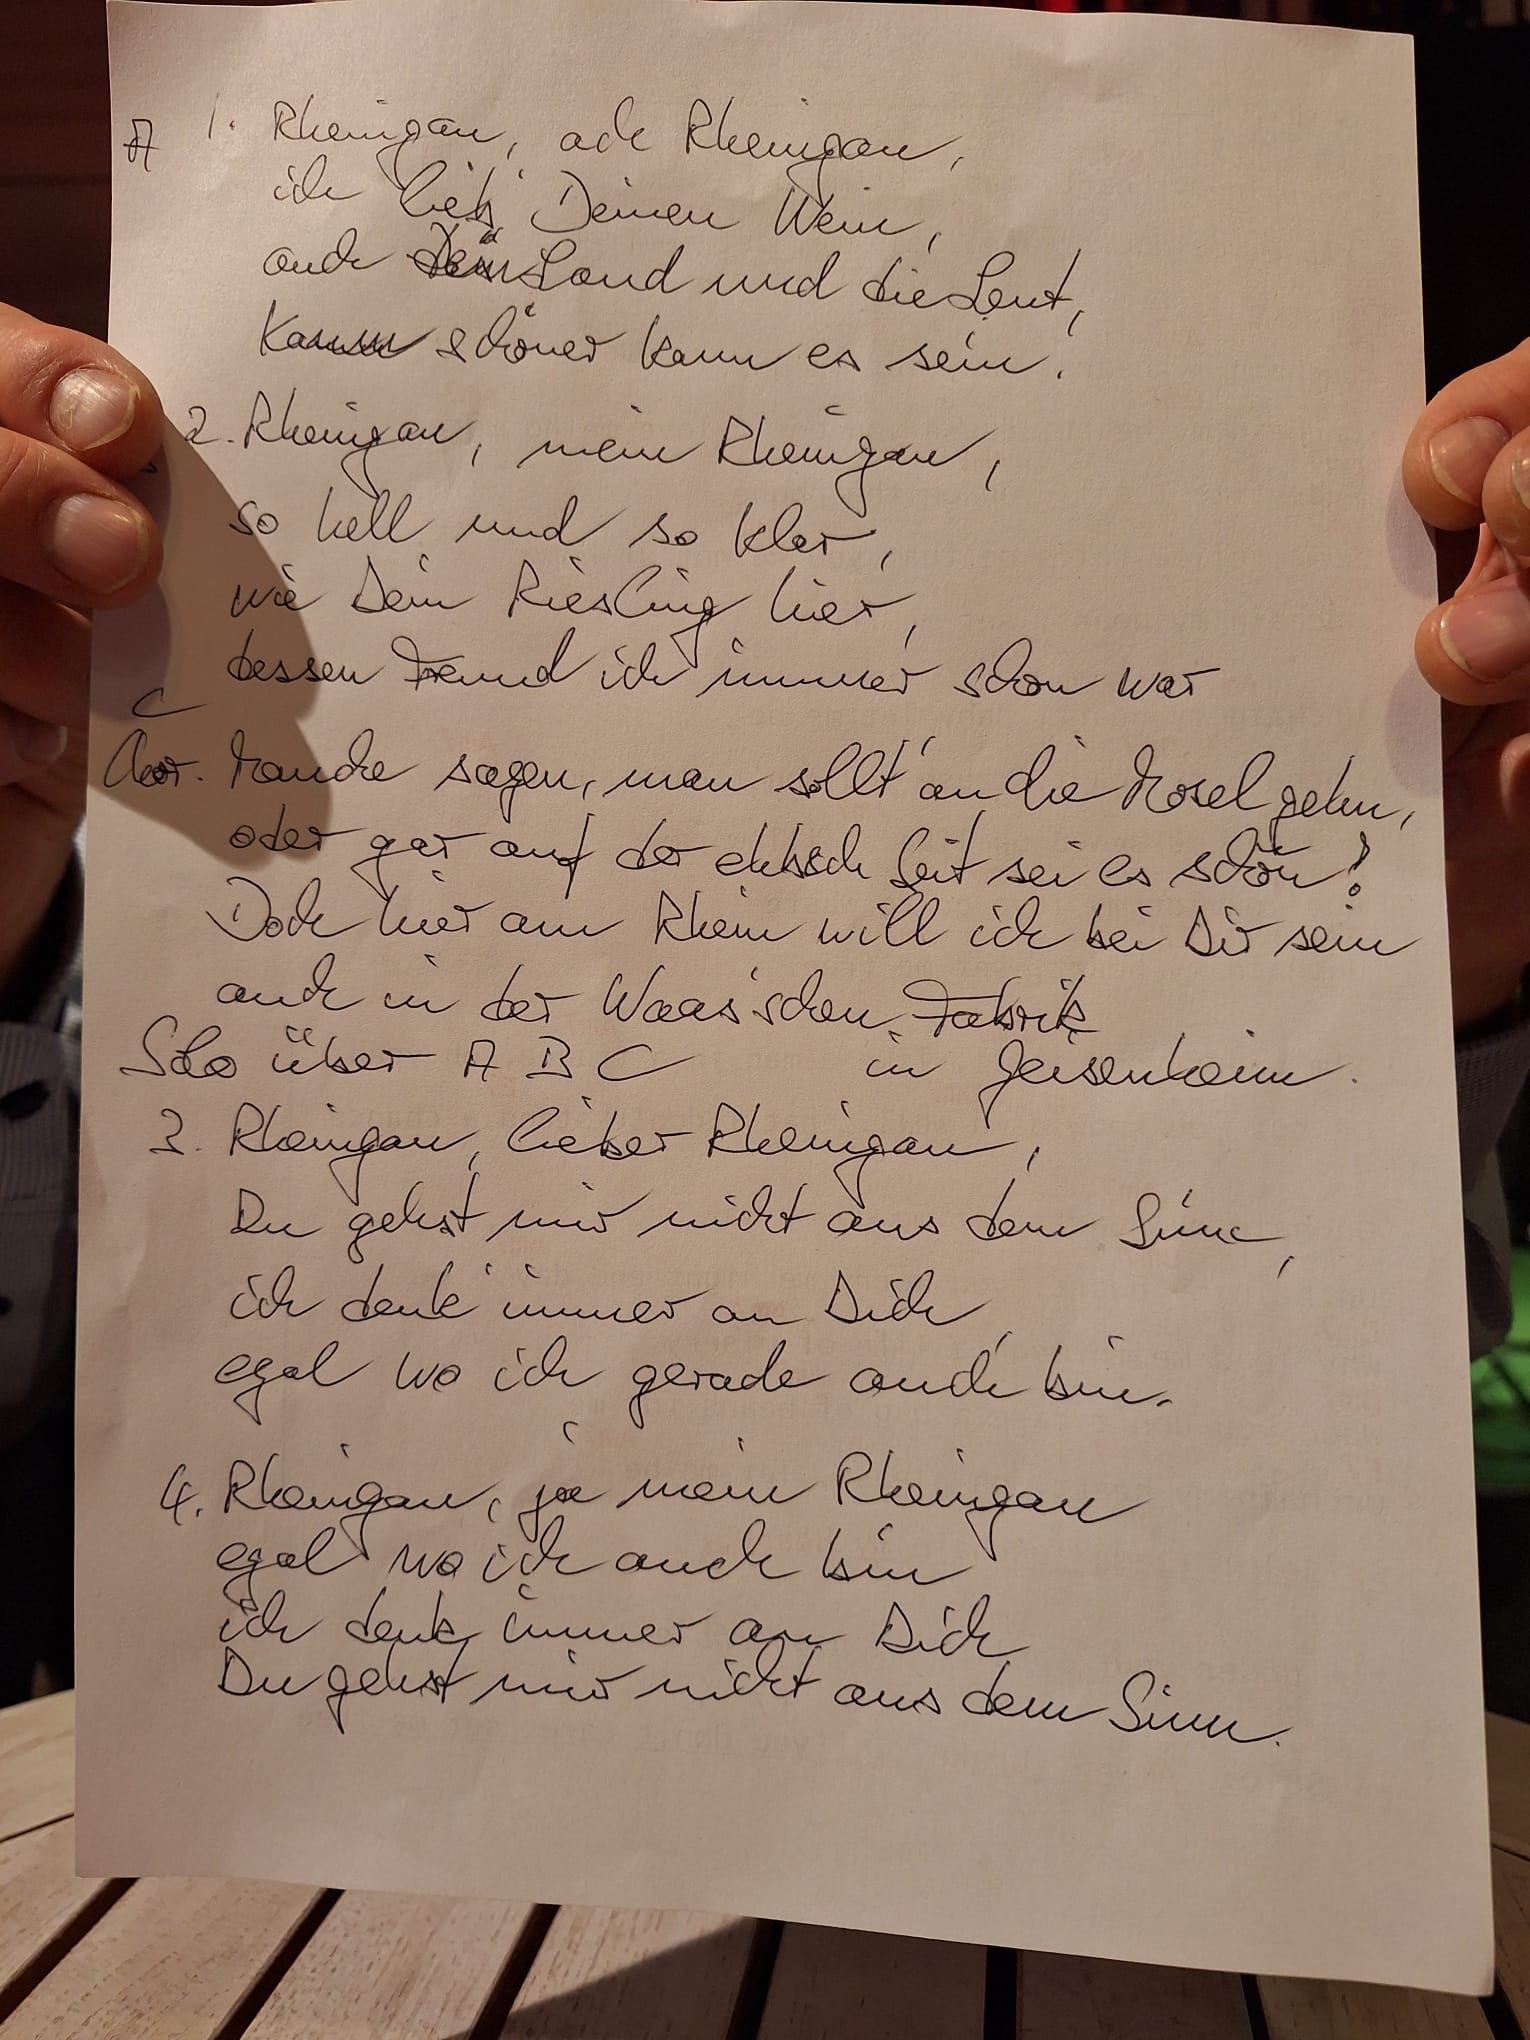 A 1. Rheingau, ach Rheingau,
ich lieb' Deinen Wein,
auch Land und die Leut,
Kaum schöner kann es sein.
2. Rheingau, mein Rheingau,
so hell und so klar,
wie Dein Riesling hier,
dessen Freund ich immer schon war
C
Chor. Manche sagen, man sollt' an die Mosel gehn,
oder gar auf der ebsch Seit sei es schön?
Doch hier am Rhein will ich bei Dir sein
auch in der Waas'schen Fabrik
Solo über A B C in Geisenheim.
3. Rheingau, lieber Rheingau,
Du gehst mir nicht aus dem Sinn,
ich denk' immer an Dich,
egal wo ich gerade auch bin.
4. Rheingau, ja mein Rheingau
egal wo ich auch bin
ich denk immer an Dich
Du gehst mir nicht aus dem Sinn.